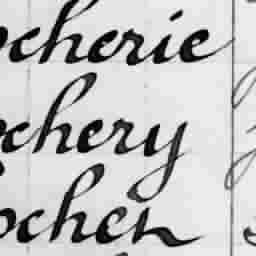 ocherie
ochery
ochen